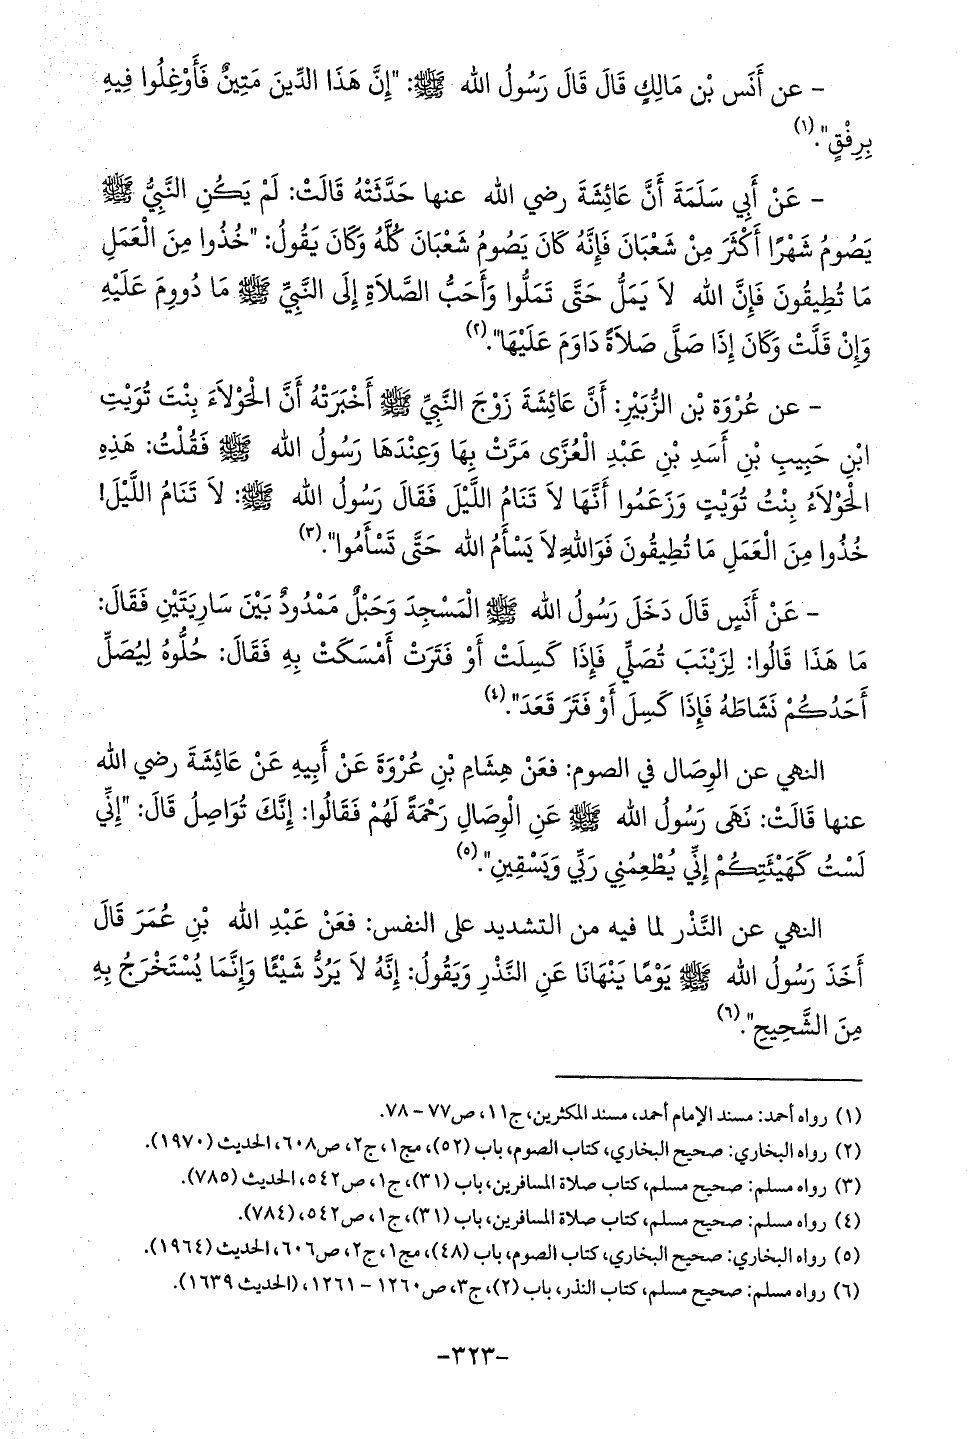 - عن أَنَس بْن مَالِكٍ قَالَ قَالَ رَسُولُ الله ﷺ: "إِنَّ هَذَا الدِّينَ مَتِينٌ فَأَوْغِلُوا فِيهِ
بِرِفْقٍ".(١)
- عَنْ أَبِي سَلَمَةَ أَنَّ عَائِشَةَ رضي الله عنها حَدَّثَتْهُ قَالَتْ: لَمْ يَكُنِ النَّبِيُّ ﷺ
يَصُومُ شَهْرًا أَكْثَرَ مِنْ شَعْبَانَ فَإِنَّهُ كَانَ يَصُومُ شَعْبَانَ كُلَّهُ وَكَانَ يَقُولُ: "خُذُوا مِنَ الْعَمَلِ
مَا تُطِيقُونَ فَإِنَّ الله لاَ يَمَلُّ حَتَّى تَمَلُّوا وَأَحَبُّ الصَّلاَةِ إِلَى النَّبِيِّ ﷺ مَا دُووِمَ عَلَيْهِ
وَإِنْ قَلَّتْ وَكَانَ إِذَا صَلَّى صَلاَةً دَاوَمَ عَلَيْهَا".(٢)
- عن عُرْوَة بْن الزُّبَيْرِ: أَنَّ عَائِشَةَ زَوْجَ النَّبِيِّ ﷺ أَخْبَرَتْهُ أَنَّ الْحَوْلاَءَ بِنْتَ تُوَيْتِ
ابْنِ حَبِيبِ بْنِ أَسَدِ بْنِ عَبْدِ الْعُزَّى مَرَّتْ بِهَا وَعِنْدَهَا رَسُولُ الله ﷺ فَقُلْتُ: هَذِهِ
الْحَوْلاَءُ بِنْتُ تُوَيْتٍ وَزَعَمُوا أَنَّهَا لاَ تَنَامُ اللَّيْلَ فَقَالَ رَسُولُ الله ﷺ: لاَ تَنَامُ اللَّيْلَ!
خُذُوا مِنَ الْعَمَلِ مَا تُطِيقُونَ فَوَاللَّهِ لاَ يَسْأَمُ الله حَتَّى تَسْأَمُوا".(٣)
- عَنْ أَنَسٍ قَالَ دَخَلَ رَسُولُ الله ﷺ الْمَسْجِدَ وَحَبْلٌ مَمْدُودٌ بَيْنَ سَارِيَتَيْنِ فَقَالَ:
مَا هَذَا قَالُوا: لِزَيْنَبَ تُصَلِّي فَإِذَا كَسِلَتْ أَوْ فَتَرَتْ أَمْسَكَتْ بِهِ فَقَالَ: حُلُّوهُ لِيُصَلِّ
أَحَدُكُمْ نَشَاطَهُ فَإِذَا كَسِلَ أَوْ فَتَرَ قَعَدَ".(٤)
النهي عن الوِصَال في الصوم: فعَنْ هِشَامِ بْنِ عُرْوَةَ عَنْ أَبِيهِ عَنْ عَائِشَةَ رضي الله
عنها قَالَتْ: نَهَى رَسُولُ الله ﷺ عَنِ الْوِصَالِ رَحْمَةً لَهُمْ فَقَالُوا: إِنَّكَ تُوَاصِلُ قَالَ: "إِنِّي
لَسْتُ كَهَيْئَتِكُمْ إِنِّي يُطْعِمُنِي رَبِّي وَيَسْقِينِ".(٥)
النهي عن النَّذْر لما فيه من التشديد على النفس: فعَنْ عَبْدِ الله بْنِ عُمَرَ قَالَ
أَخَذَ رَسُولُ الله ﷺ يَوْمًا يَنْهَانَا عَنِ النَّذْرِ وَيَقُولُ: إِنَّهُ لاَ يَرُدُّ شَيْئًا وَإِنَّمَا يُسْتَخْرَجُ بِهِ
مِنَ الشَّحِيحِ".(٦)
(١) رواه أحمد: مسند الإمام أحمد، مسند المكثرين، ج١١، ص٧٧ - ٧٨.
(٢) رواه البخاري: صحيح البخاري، كتاب الصوم، باب (٥٢)، مج١، ج٢، ص٦٠٨، الحديث (١٩٧٠).
(٣) رواه مسلم: صحيح مسلم، كتاب صلاة المسافرين، باب (٣١)، ج١، ص٥٤٢، الحديث (٧٨٥).
(٤) رواه مسلم: صحيح مسلم، كتاب صلاة المسافرين، باب (٣١)، ج١، ص٥٤٢، (٧٨٤).
(٥) رواه البخاري: صحيح البخاري، كتاب الصوم، باب (٤٨)، مج١، ج٢، ص٦٠٦، الحديث (١٩٦٤).
(٦) رواه مسلم: صحيح مسلم، كتاب النذر، باب (٢)، ج٣، ص١٢٦٠ - ١٢٦١، (الحديث ١٦٣٩).
-٣٢٣-